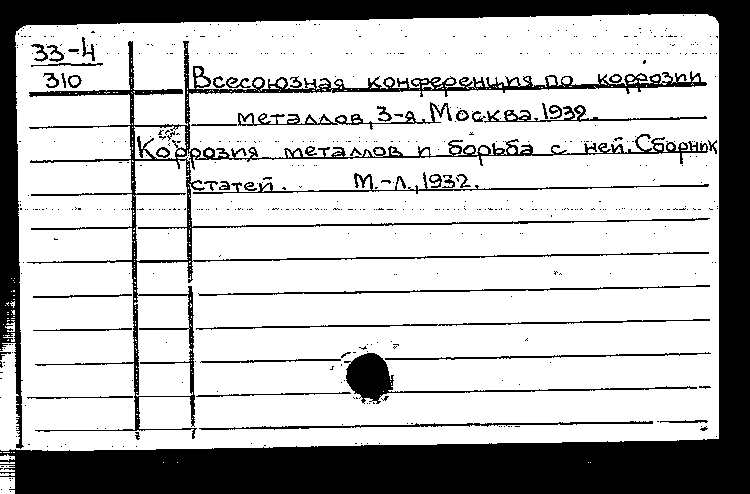 33-4
310
Всесоюзная конференция по коррозии
металлов, 3-я. Москва. 1932.
Коррозия металлов и борьба с ней. Сборник
статей. М.-Л., 1932.